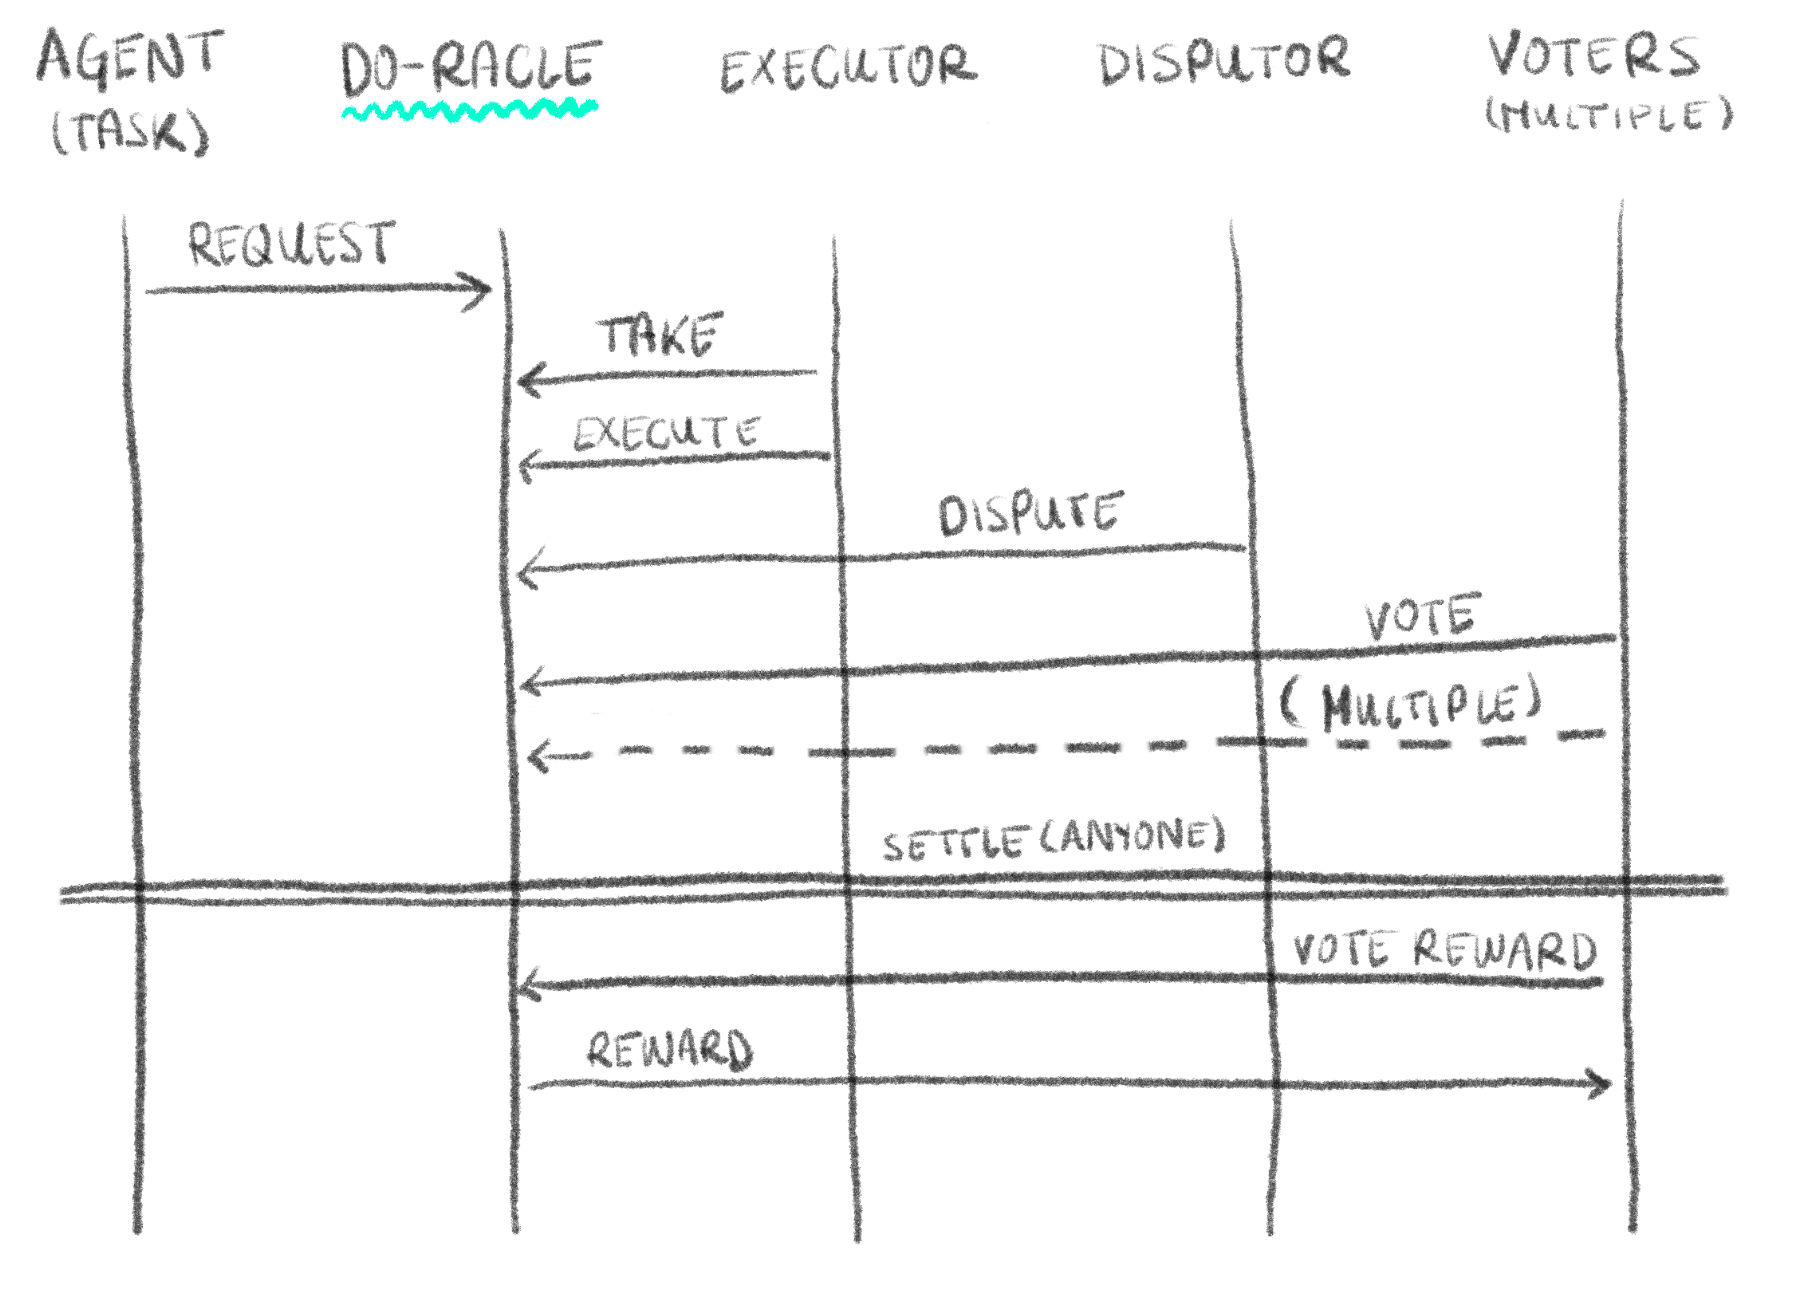 AGENT
(TASK)
DO-RACLE
EXECUTOR
DISPUTOR
VOTERS
(MULTIPLE)
REQUEST
TAKE
EXECUTE
DISPUTE
VOTE
(MULTIPLE)
SETTLE (ANYONE)
VOTE REWARD
REWARD